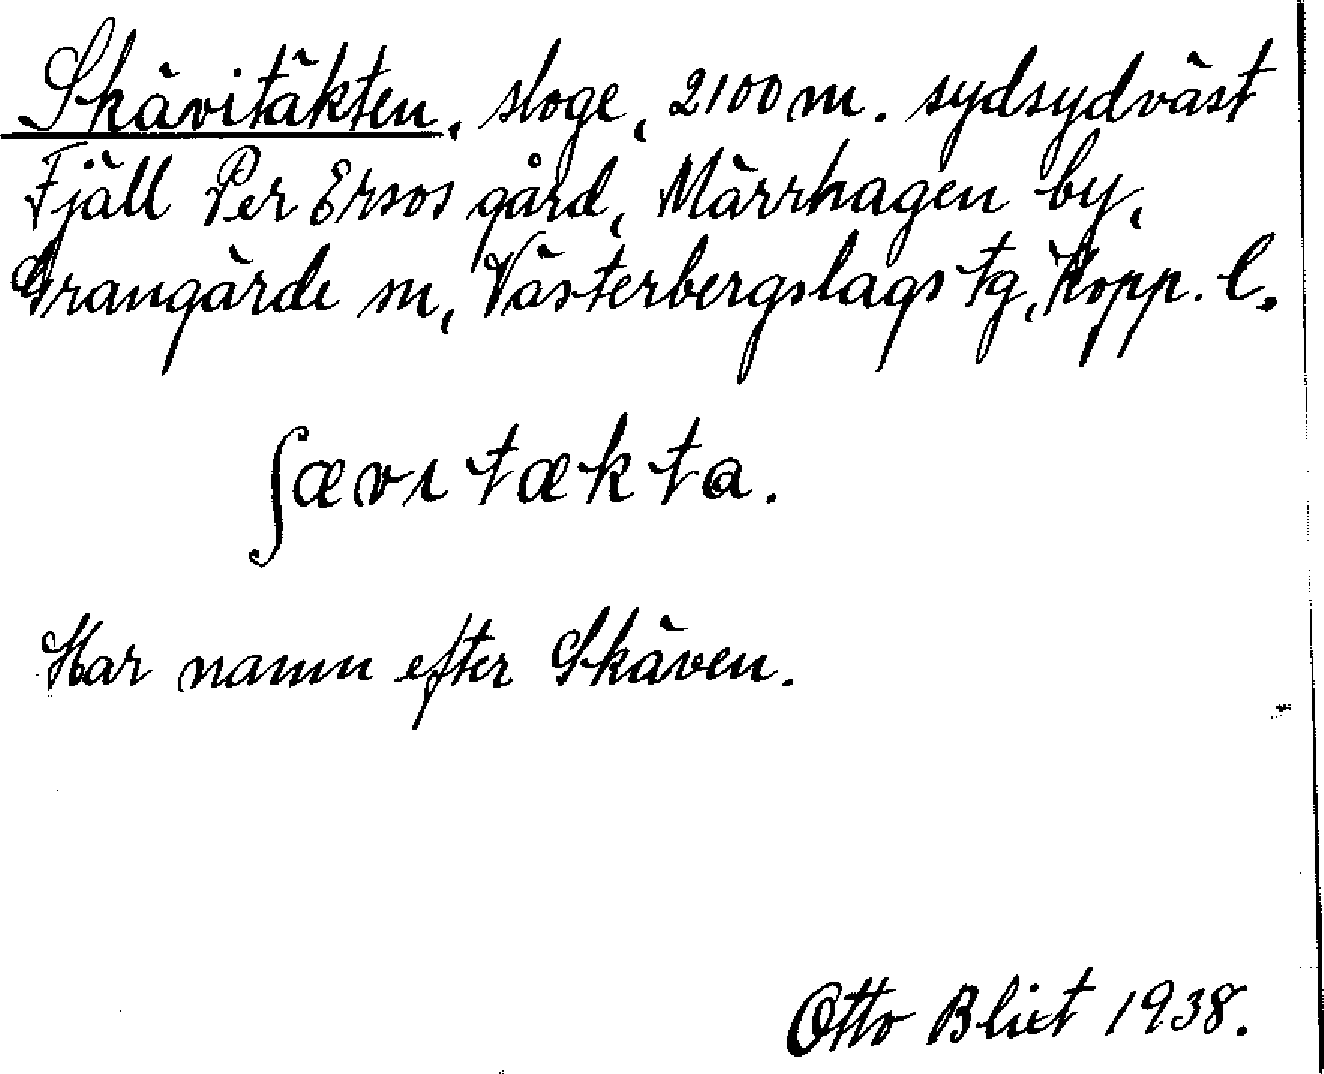 Skävitäkten, sloge, 2100 m. sydsydväst
Fjäll Per Ersos gård, Märrhagen by,
Grangärde sn, Västerbergslags tg, Kopp. l.
ʃævɩ tækta.
Har namn efter Skäven.
Otto Blixt 1938.